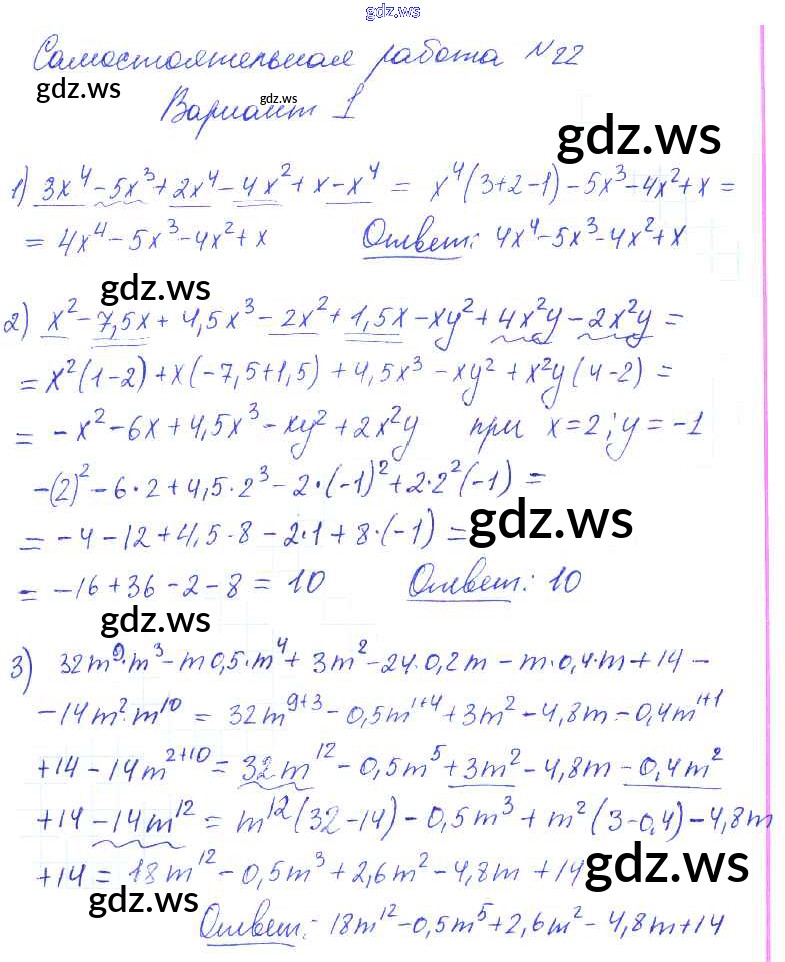 gdz.ws
Самостоятельная работа №22
gdz.ws gdz.ws
Вариант 1
gdz.ws
1) 3x⁴-5x³+2x⁴-4x²+x-x⁴ = x⁴(3+2-1)-5x³-4x²+x=
= 4x⁴-5x³-4x²+x Ответ: 4x⁴-5x³-4x²+x
gdz.ws
2) x²-7,5x+4,5x³-2x²+1,5x-xy²+4x²y-2x²y=
=x²(1-2)+x(-7,5+1,5)+4,5x³-xy²+x²y(4-2)=
= -x²-6x+4,5x³-xy²+2x²y при x=2; y=-1
-(2)²-6·2+4,5·2³-2·(-1)²+2·2²(-1)=
= -4-12+4,5·8-2·1+8·(-1)=
gdz.ws
= -16+36-2-8=10 Ответ: 10
gdz.ws
3) 32m⁹·m³-m0,5·m⁴+3m²-24·0,2m-m·0,4·m+14-
-14m²·m¹⁰ = 32m⁹⁺³-0,5m¹⁺⁴+3m²-4,8m-0,4m¹⁺¹
+14-14m²⁺¹⁰=32m¹²-0,5m⁵+3m²-4,8m-0,4m²
+14-14m¹²=m¹²(32-14)-0,5m³+m²(3-0,4)-4,8m
+14=18m¹²-0,5m³+2,6m²-4,8m+14
gdz.ws
gdz.ws
Ответ: 18m¹²-0,5m⁵+2,6m²-4,8m+14